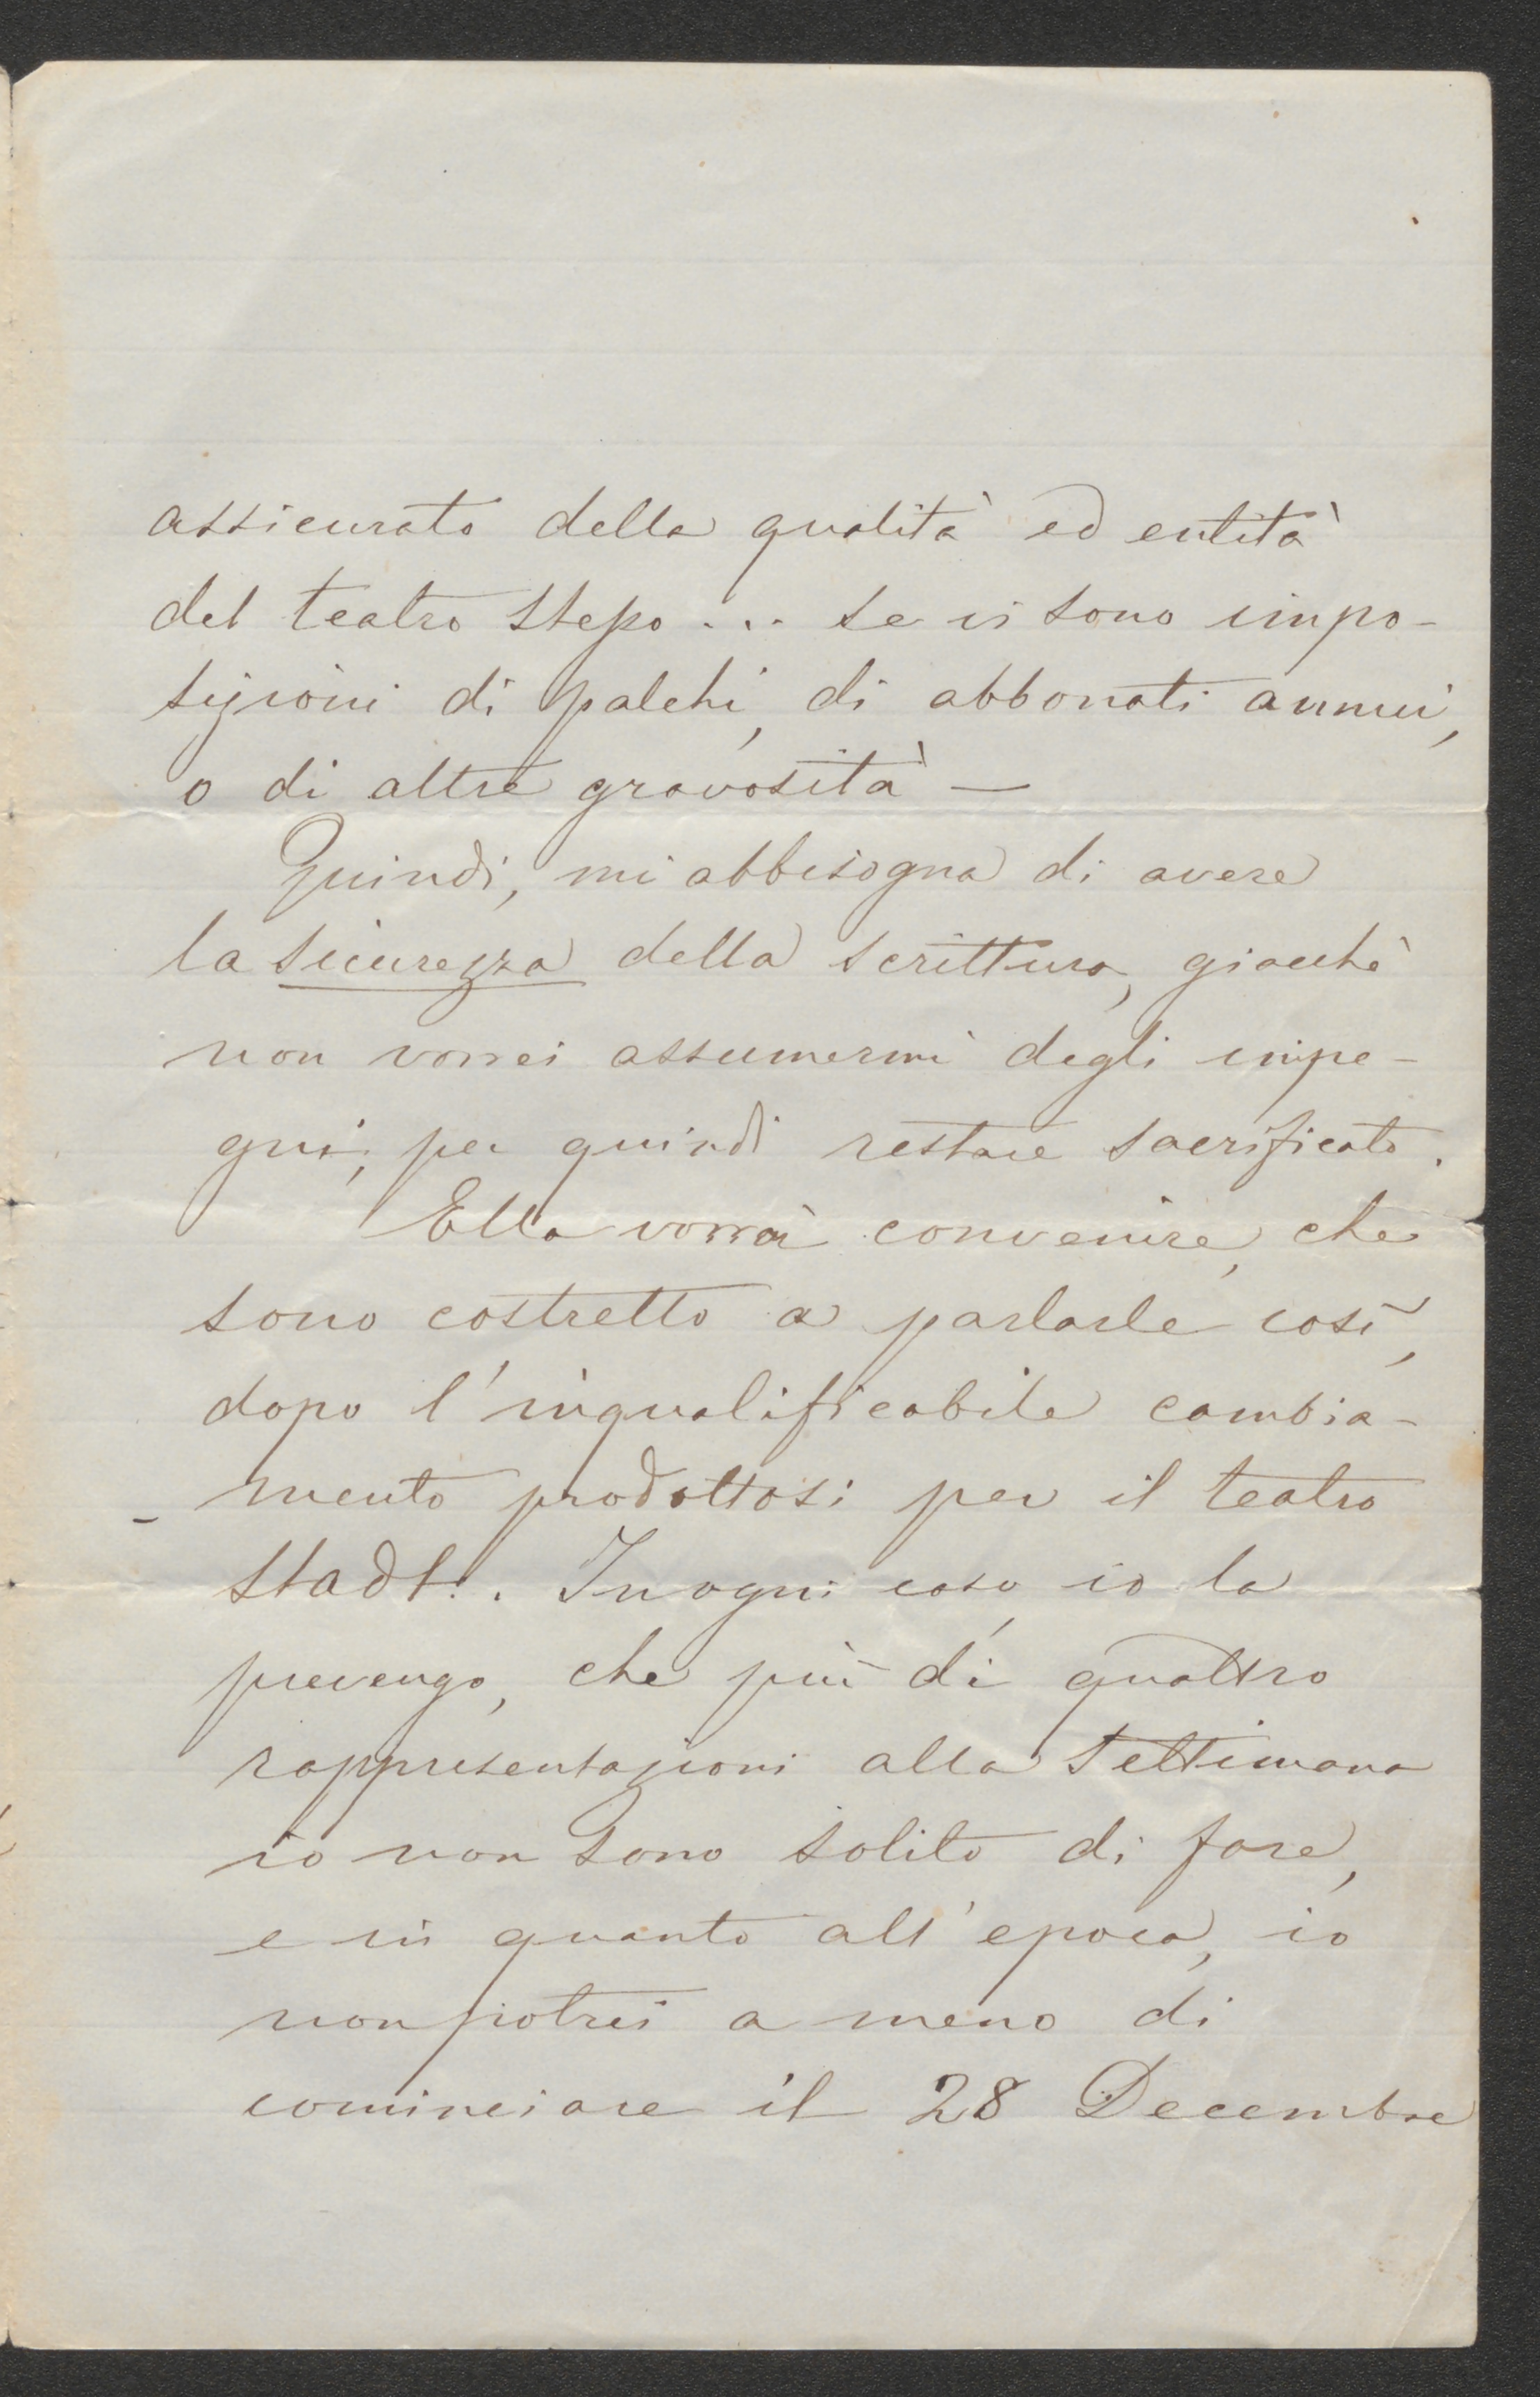 assicurato della qualità ed entità
del teatro stesso ... se vi sono impo-
sizioni di palchi, di abbonati annui,
o di altre gravosità —
Quindi, mi abbisogna di avere
la sicurezza della scrittura, giacchè
non vorrei assumermi degli impe-
gni, per quindi restare sacrificato.
Ella vorrà convenire, che
sono costretto a parlarle così,
dopo l'inqualificabile cambia-
mento prodottosi per il teatro
Stadt!. In ogni caso, io la
prevengo, che più di quattro
rappresentazioni alla settimana
io non sono solito di fare,
e in quanto all'epoca, io
non potrei a meno di
cominciare il 28 Decembre